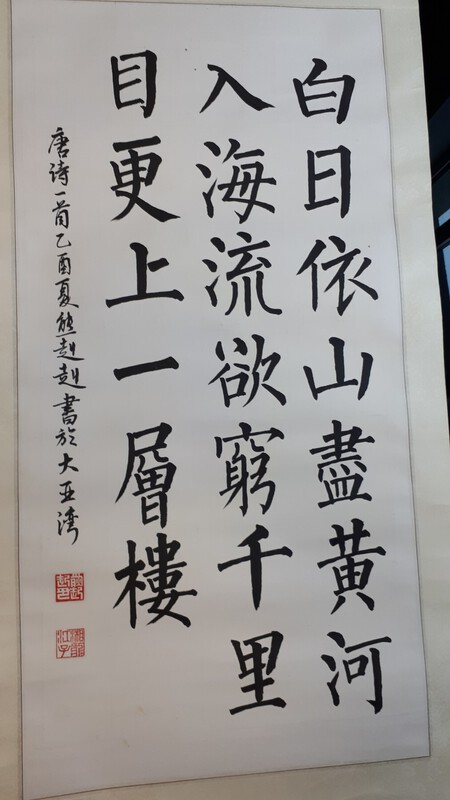 白日依山盡黄河
入海流欲窮千里
目更上一層樓
唐詩一首乙酉夏熊赳赳書於大亞灣